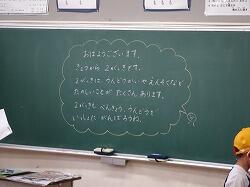 おはようございます。
きょうから 2がっきです。
2がっきは、うんどうかいやえんそくなど
たのしいことが たくさん あります。
2がっきも べんきょう、うんどうを
いっしょに がんばろうね。